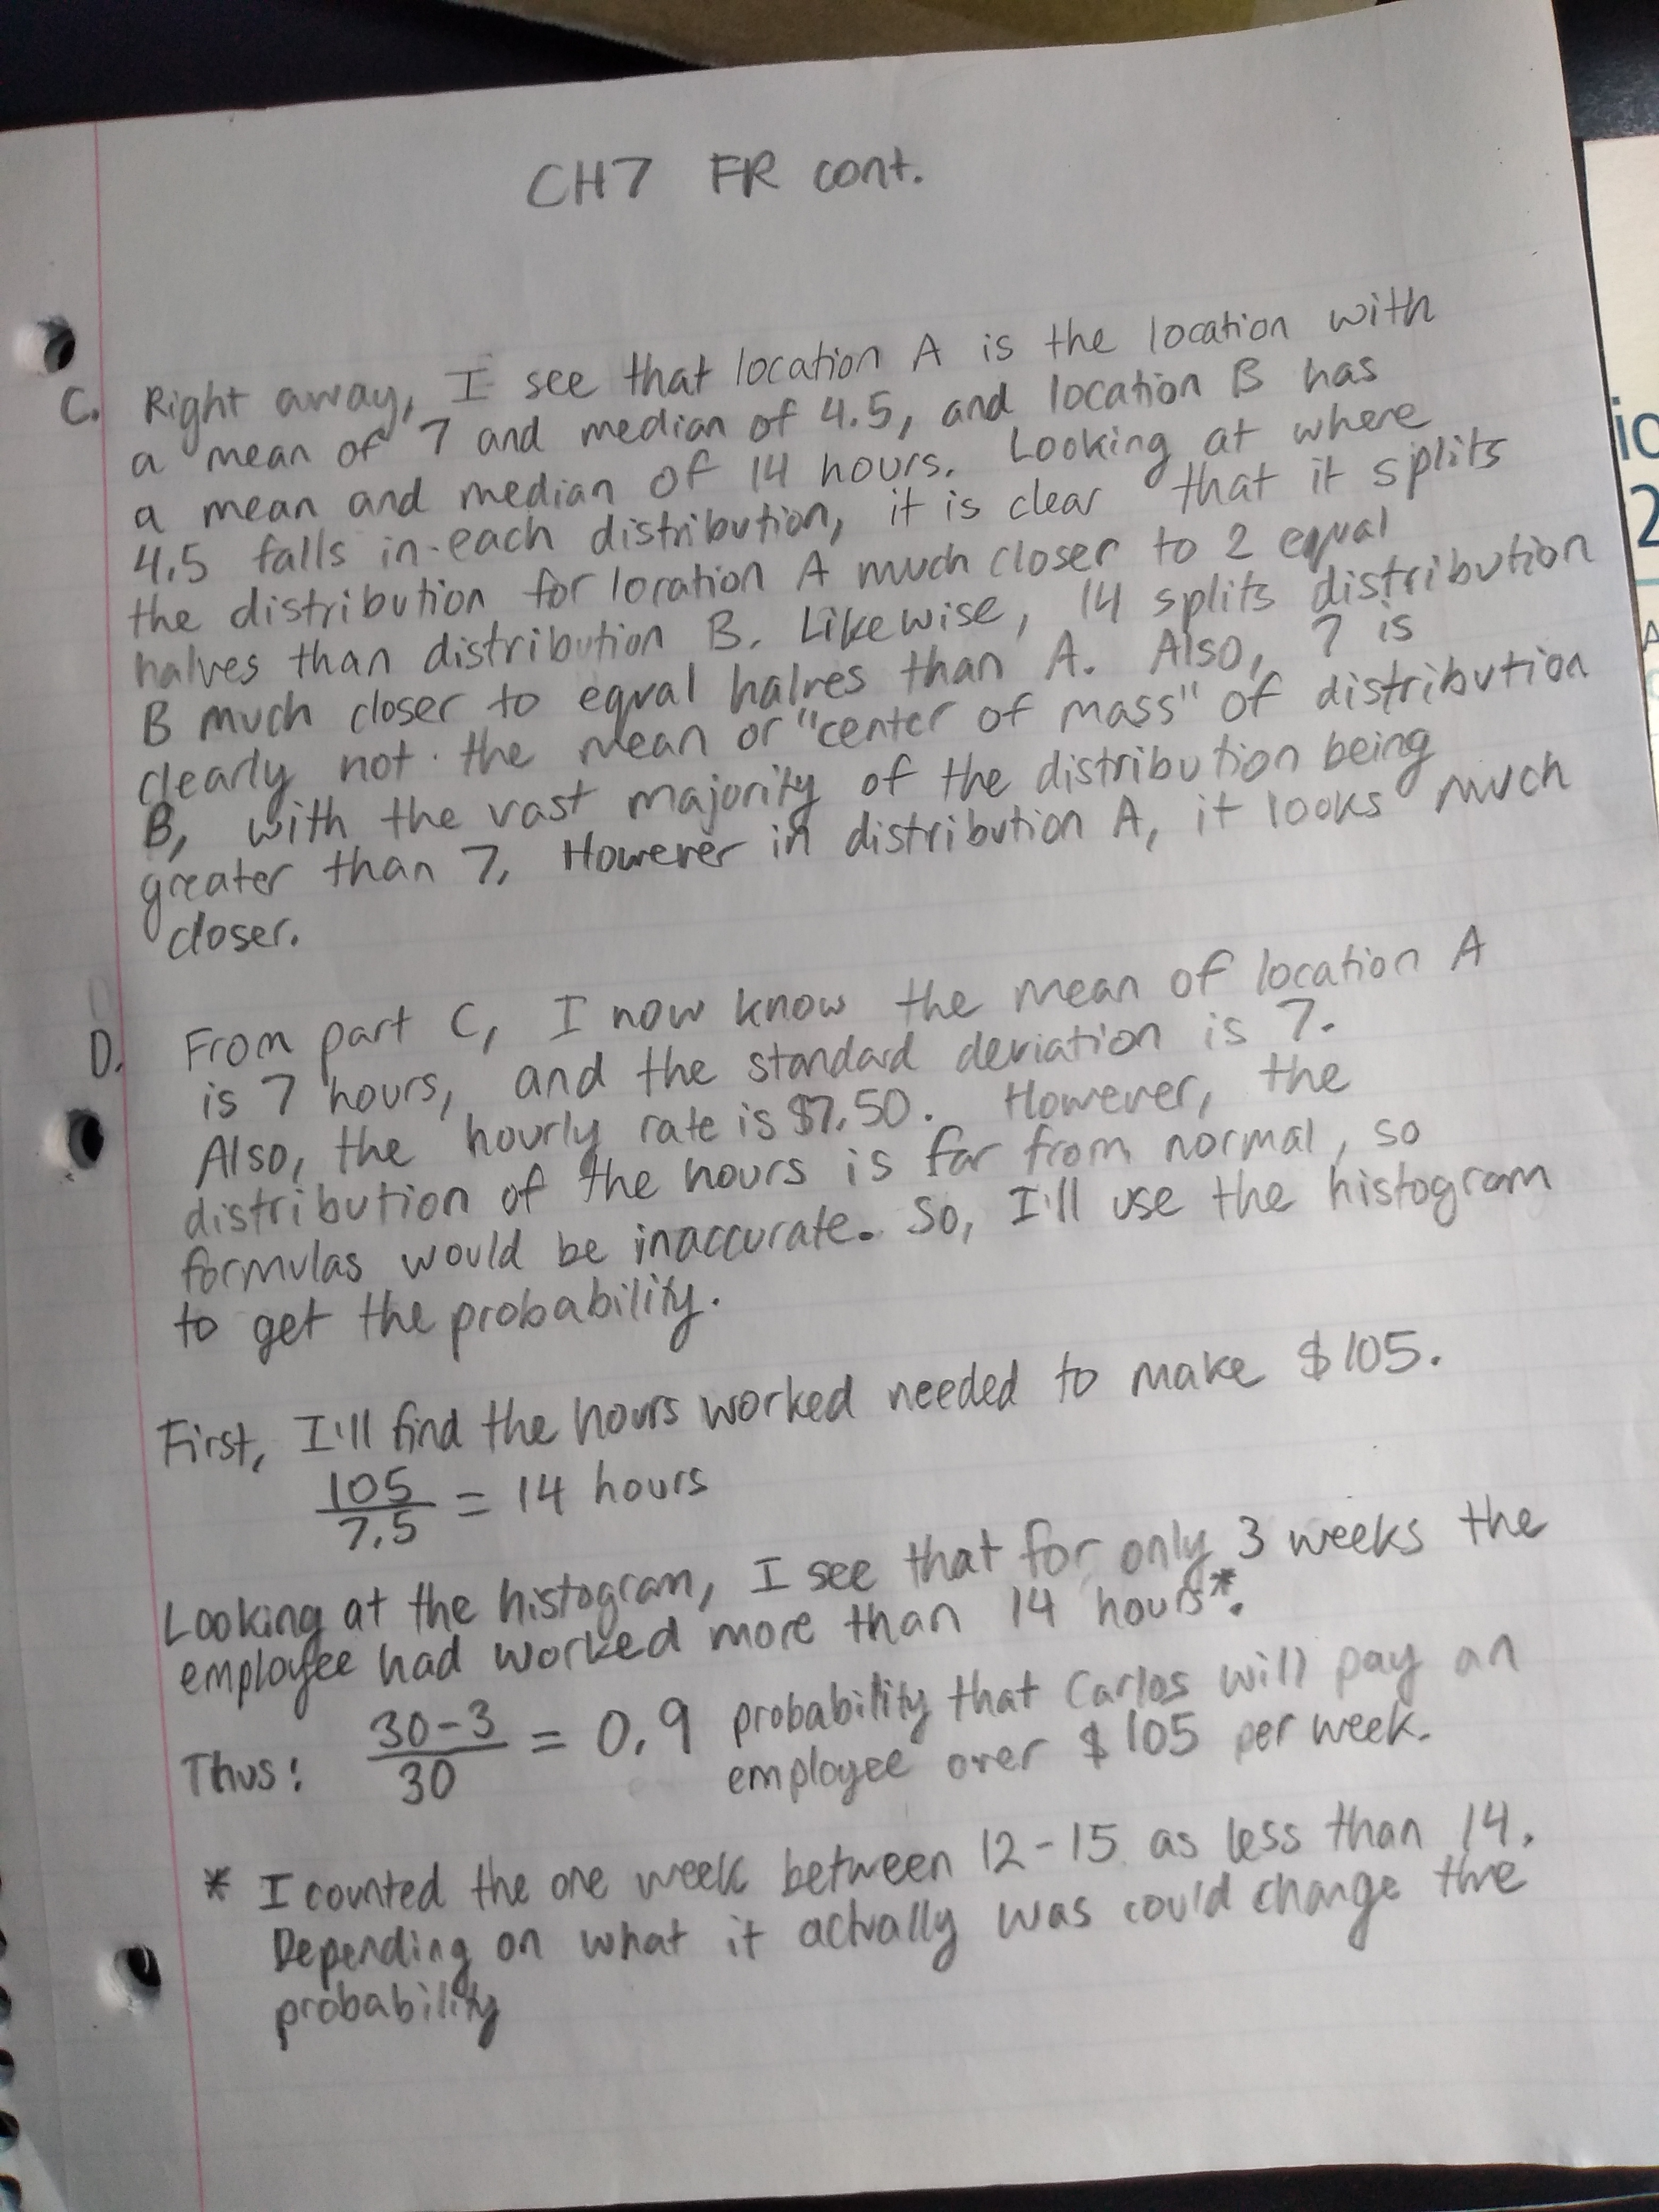 CH7 FR cont.
C. Right away, I see that location A is the location with
a mean of 7 and median of 4.5, and location B has
a mean and median of 14 hours. Looking at where
4.5 falls in each distribution, it is clear that it splits
the distribution for location A much closer to 2 equal
halves than distribution B. Likewise, 14 splits distribution
B much closer to equal halves than A. Also, 7 is
clearly not the mean or "center of mass" of distribution
B, with the vast majority of the distribution being
greater than 7. However in distribution A, it looks much
closer.
D. From part C, I now know the mean of location A
is 7 hours, and the standard deviation is 7.
Also, the hourly rate is $7.50. However, the
distribution of the hours is far from normal, so
formulas would be inaccurate. So, I'll use the histogram
to get the probability.
First, I'll find the hours worked needed to make $105.
105/7.5 = 14 hours
Looking at the histogram, I see that for only 3 weeks the
employee had worked more than 14 hours*.
Thus: 30-3/30 = 0.9 probability that Carlos will pay an
employee over $105 per week.
* I counted the one week between 12-15 as less than 14.
Depending on what it actually was could change the
probability
io
2
A